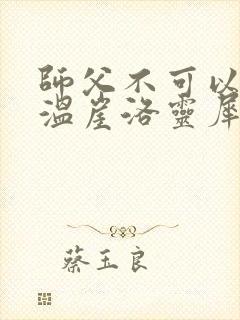 師父不可以
溫崖洛靈犀
蔡玉良